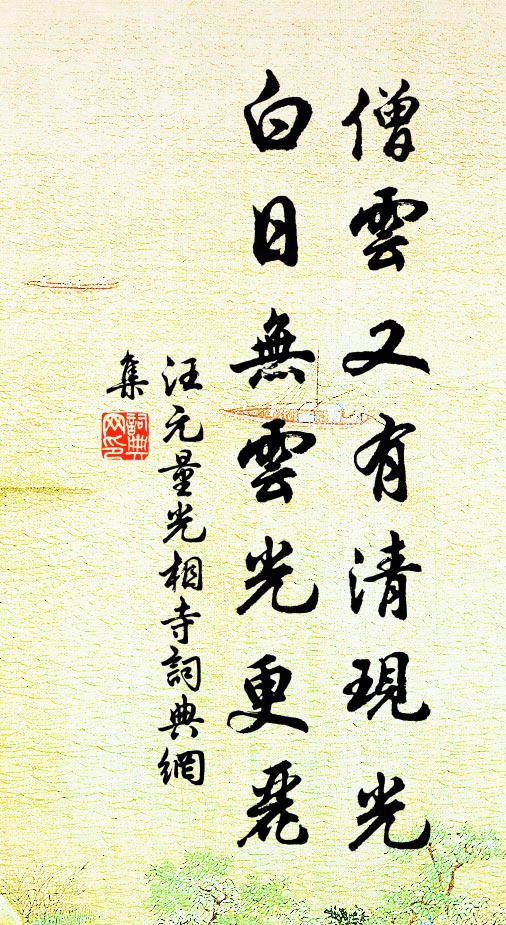 僧雲又有清現光
白日無雲光更麗
汪元量光相寺詞典網
集
詞典网印